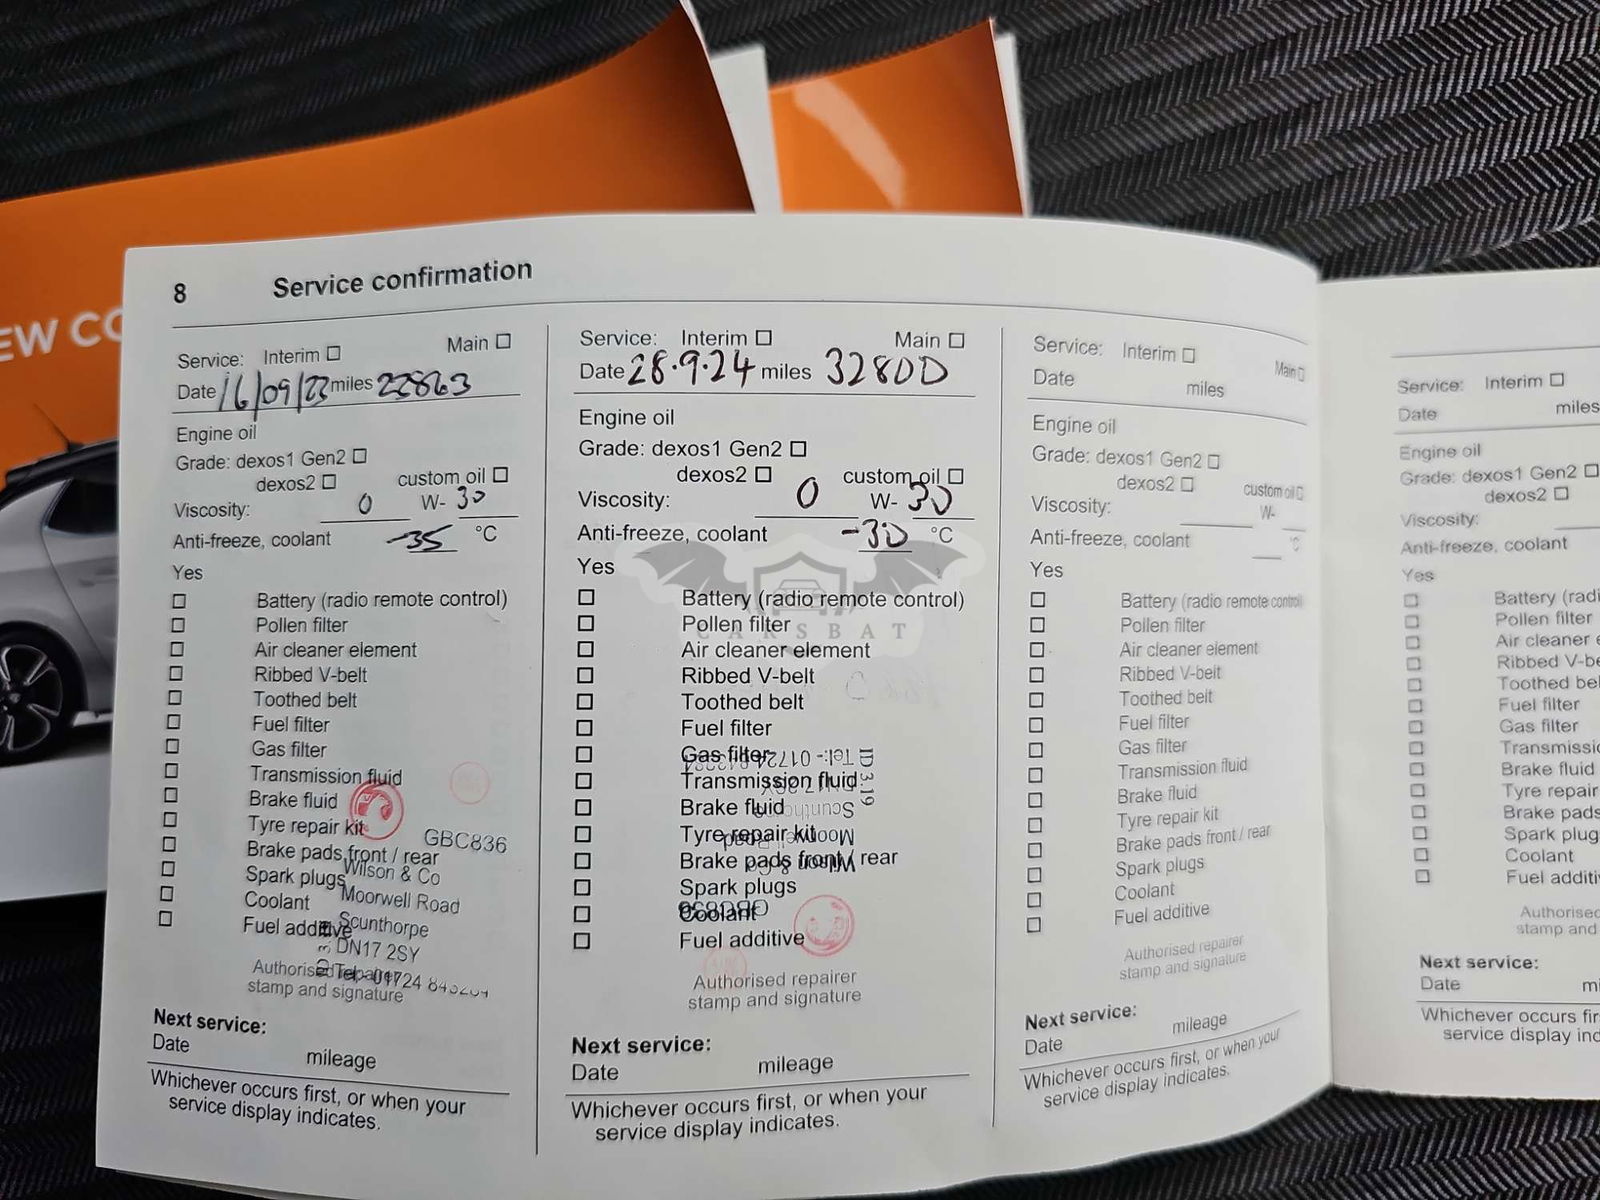 EW CO
8 Service confirmation
Service: Interim ☐ Main ☐
Date 16/09/23 miles 22863
Engine oil
Grade: dexos1 Gen2 ☐
dexos2 ☐ custom oil ☐
Viscosity: 0 W- 30
Anti-freeze, coolant -35 °C
Yes
☐ Battery (radio remote control)
☐ Pollen filter
☐ Air cleaner element
☐ Ribbed V-belt
☐ Toothed belt
☐ Fuel filter
☐ Gas filter
☐ Transmission fluid
☐ Brake fluid
☐ Tyre repair kit
☐ Brake pads front / rear
☐ Spark plugs
☐ Coolant
☐ Fuel additive
GBC836
Wilson & Co
Moorwell Road
Scunthorpe
DN17 2SY
Tel:- 01724
Authorised repairer
stamp and signature
Next service:
Date mileage
Whichever occurs first, or when your
service display indicates.
Service: Interim ☐ Main ☐
Date 28.9.24 miles 32800
Engine oil
Grade: dexos1 Gen2 ☐
dexos2 ☐ custom oil ☐
Viscosity: 0 W- 30
Anti-freeze, coolant -30 °C
Yes
☐ Battery (radio remote control)
☐ Pollen filter
☐ Air cleaner element
☐ Ribbed V-belt
☐ Toothed belt
☐ Fuel filter
☐ Gas filter
☐ Transmission fluid
☐ Brake fluid
☐ Tyre repair kit
☐ Brake pads front / rear
☐ Spark plugs
☐ Coolant
☐ Fuel additive
GBC836
Wilson & Co
Moorwell Road
Scunthorpe
Tel:- 01724
ID 3.19
Authorised repairer
stamp and signature
Next service:
Date mileage
Whichever occurs first, or when your
service display indicates.
CARSBAT
Service: Interim ☐ Main ☐
Date miles
Engine oil
Grade: dexos1 Gen2 ☐
dexos2 ☐ custom oil ☐
Viscosity: W-
Anti-freeze, coolant °C
Yes
☐ Battery (radio remote control)
☐ Pollen filter
☐ Air cleaner element
☐ Ribbed V-belt
☐ Toothed belt
☐ Fuel filter
☐ Gas filter
☐ Transmission fluid
☐ Brake fluid
☐ Tyre repair kit
☐ Brake pads front / rear
☐ Spark plugs
☐ Coolant
☐ Fuel additive
Authorised repairer
stamp and signature
Next service:
Date mileage
Whichever occurs first, or when your
service display indicates.
Service: Interim ☐
Date miles
Engine oil
Grade: dexos1 Gen2 ☐
dexos2 ☐
Viscosity:
Anti-freeze, coolant
Yes
☐ Battery (radi
☐ Pollen filter
☐ Air cleaner e
☐ Ribbed V-be
☐ Toothed bel
☐ Fuel filter
☐ Gas filter
☐ Transmissio
☐ Brake fluid
☐ Tyre repair
☐ Brake pads
☐ Spark plug
☐ Coolant
☐ Fuel additi
Authorised
stamp and
Next service:
Date mi
Whichever occurs fir
service display ind